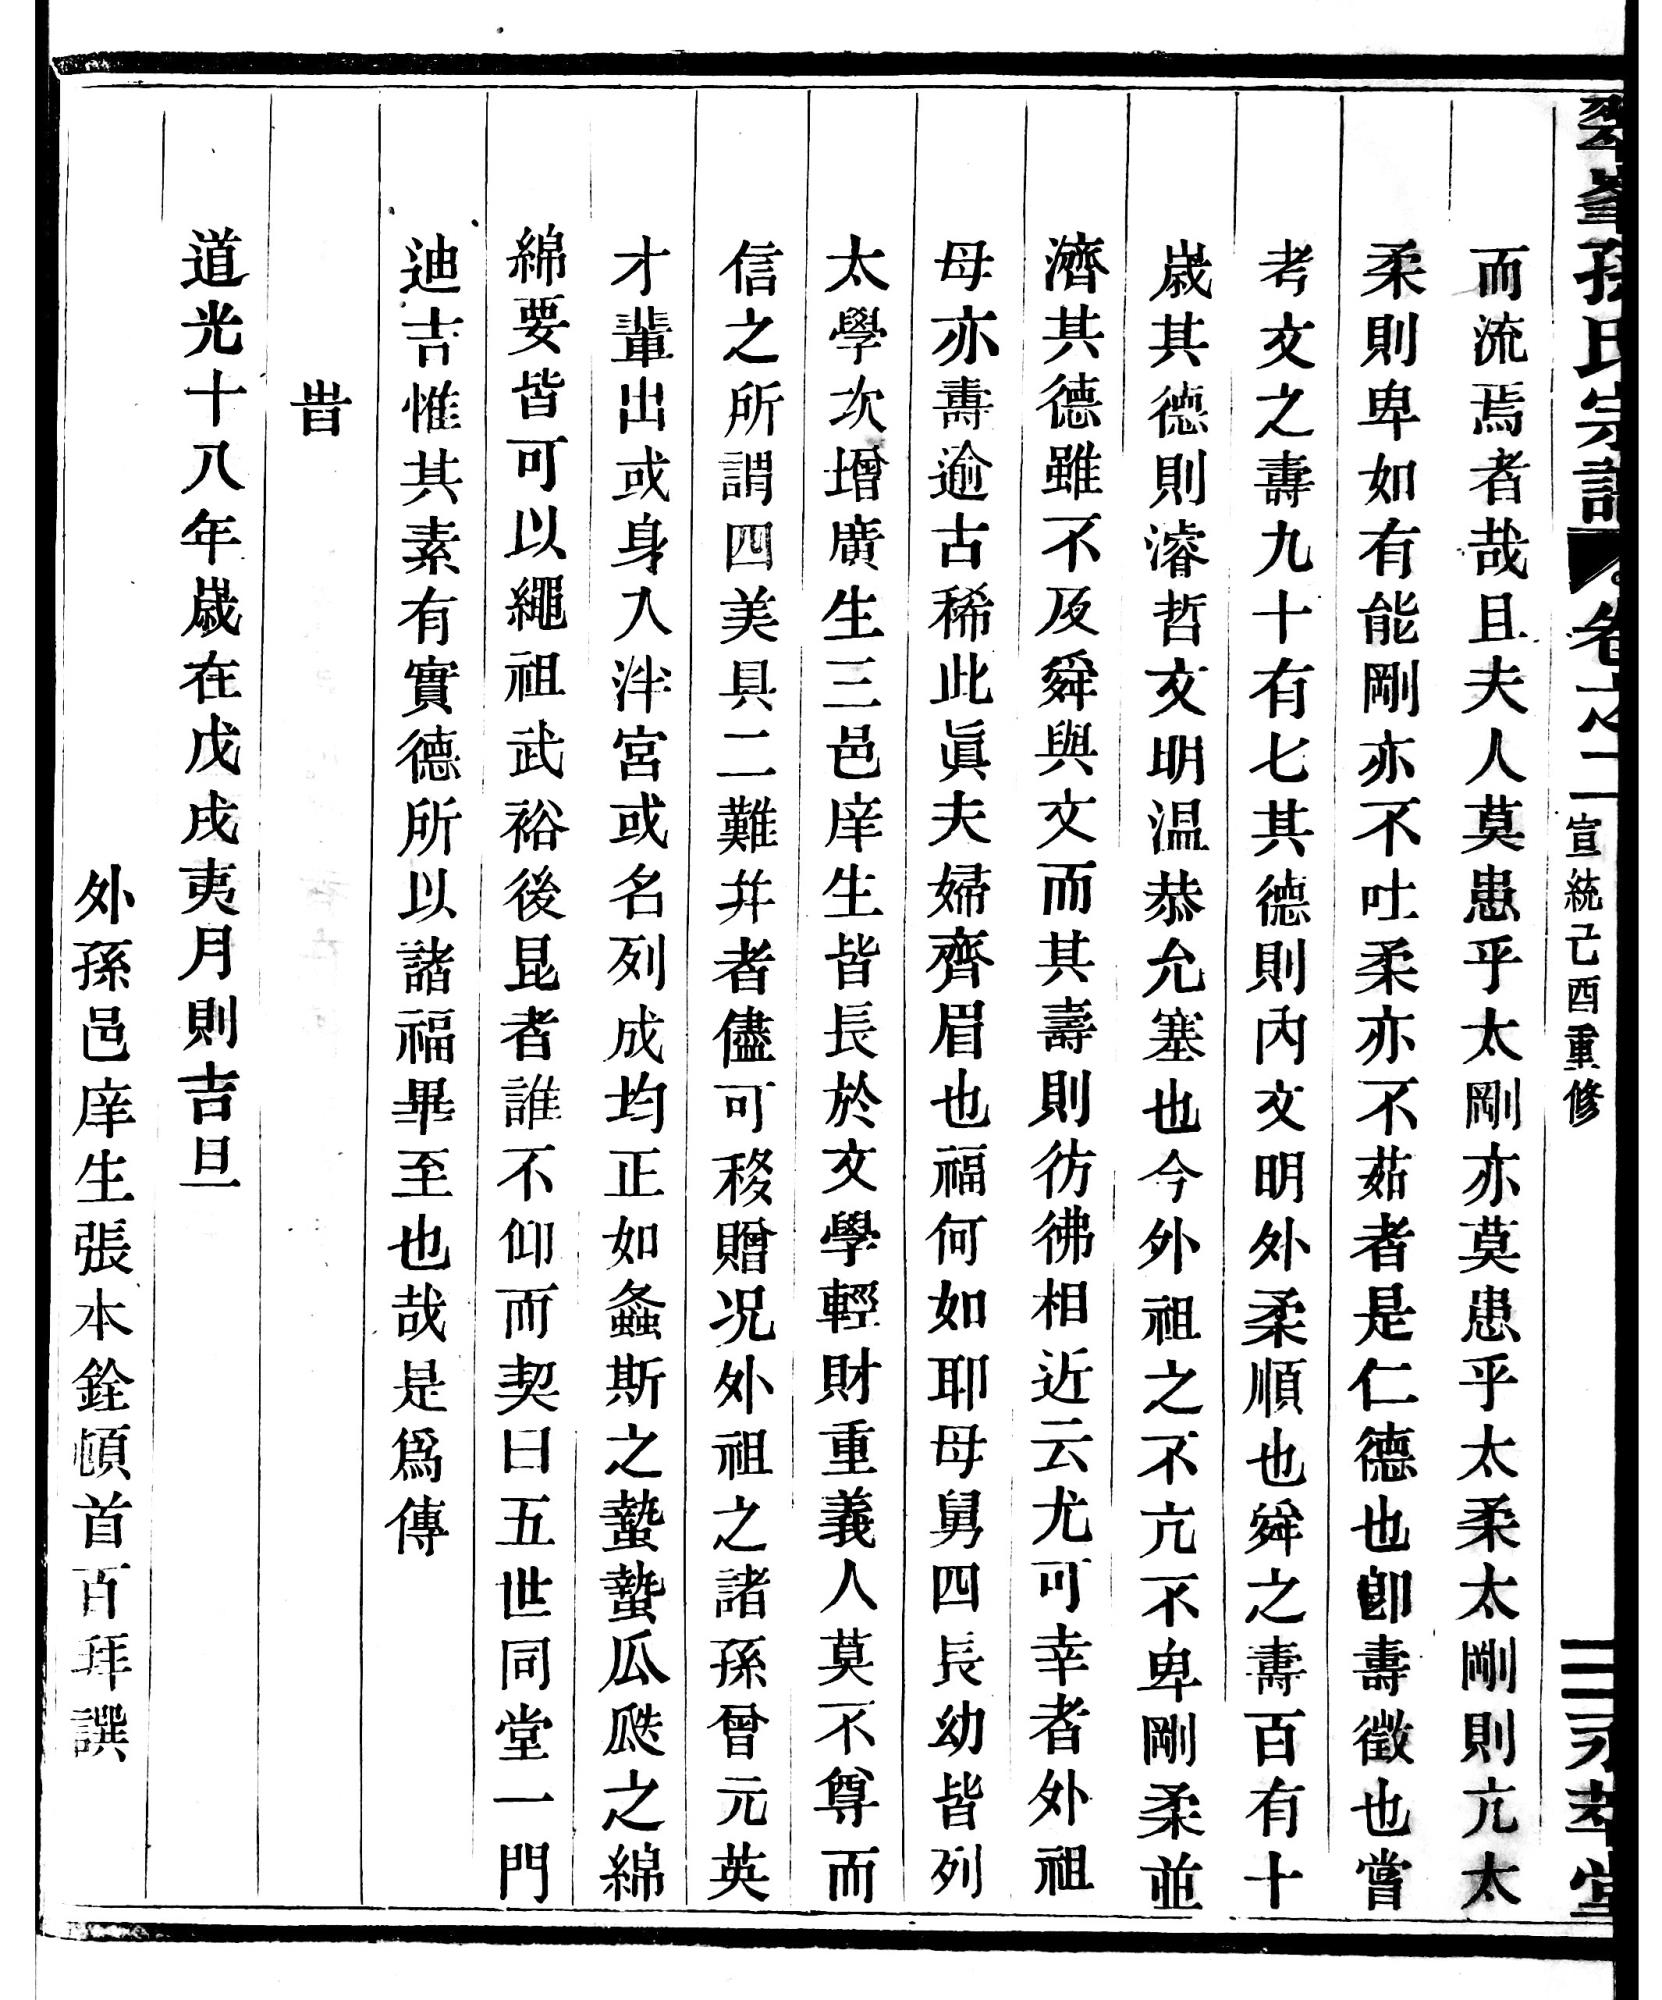 孫氏宗譜 卷之二 宣統己酉重修 三 永萃堂
而流焉者哉且夫人莫患乎太剛亦莫患乎太柔太剛則亢太
柔則卑如有能剛亦不吐柔亦不茹者是仁德也卽壽徵也嘗
考文之壽九十有七其德則內文明外柔順也舜之壽百有十
歲其德則濬哲文明温恭允塞也今外祖之不亢不卑剛柔並
濟其德雖不及舜與文而其壽則彷彿相近云尤可幸者外祖
母亦壽逾古稀此眞夫婦齊眉也福何如耶母舅四長幼皆列
太學次增廣生三邑庠生皆長於文學輕財重義人莫不尊而
信之所謂四美具二難并者儘可移贈况外祖之諸孫曾元英
才輩出或身入泮宮或名列成均正如螽斯之蟄蟄瓜瓞之綿
綿要皆可以繩祖武裕後昆者誰不仰而契曰五世同堂一門
迪吉惟其素有實德所以諸福畢至也哉是爲傳
旹
道光十八年歲在戊戌夷月則吉旦
外孫邑庠生張本銓頓首百拜譔